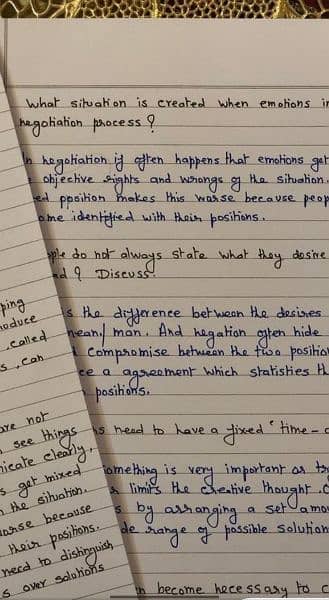 What situation is created when emotions in
negotiation process ?
In negotiation if often happens that emotions get
objective rights and wrongs of the situation.
ed ppoition makes this worse because peop
ome identified with their positions.
ple do not always state what they desire
nd ? Discuss.
s the difference between the desires
mean/ man. And negation often hide
compromise between the two position
ce a agreement which statisties th
positions.
ns need to have a fixed "time-
something is very important as
limits the creative thought.
s by arranging a set amo
de range of possible solution
become necessary to
ping
roduce
called
s, can
are not
see things
nicate clearly,
s get mixed
the situation.
orse because
their positions.
need to distinguish
s over solutions